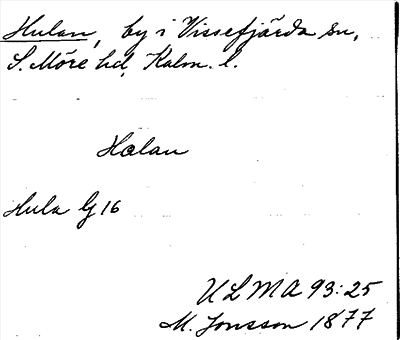 Hulan, by i Vissefjärda sn,
S. Möre hd, Kalm. l.
Holan
Hula G 16
ULMA 93:25
M. Jonsson 1877